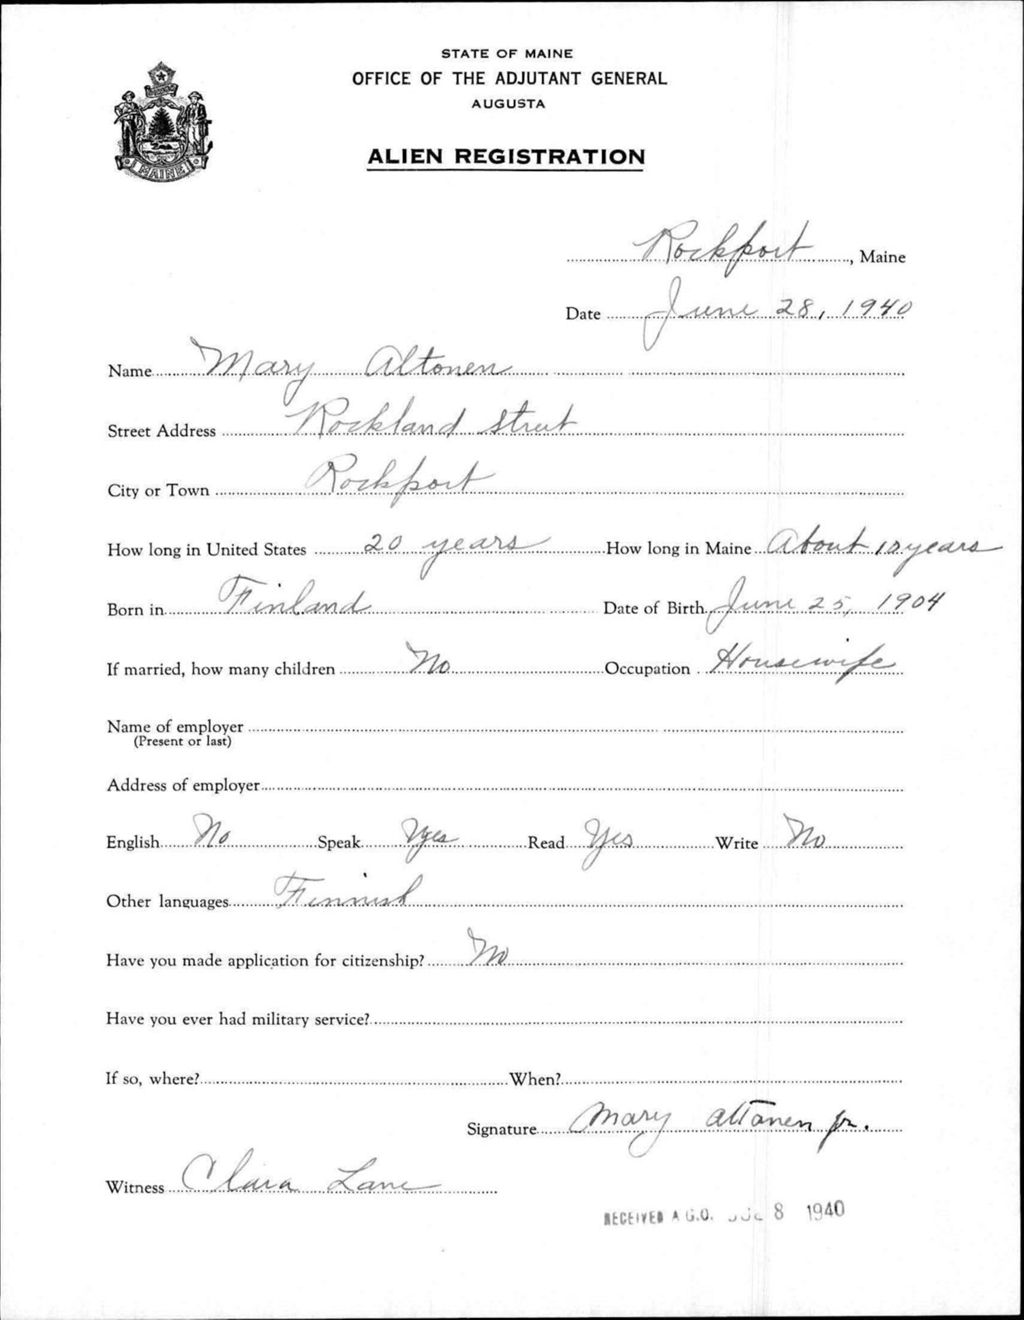 STATE OF MAINE
OFFICE OF THE ADJUTANT GENERAL
AUGUSTA
ALIEN REGISTRATION
MAINE
Rockport, Maine
Date June 28, 1940
Name Mary Altonen
Street Address Rockland Street
City or Town Rockport
How long in United States 20 years How long in Maine About years
Born in Finland Date of Birth June 25, 1904
If married, how many children No Occupation Housewife
Name of employer
(Present or last)
Address of employer
English No Speak Yes Read Yes Write No
Other languages Finnish
Have you made application for citizenship? No
Have you ever had military service?
If so, where? When?
Signature Mary Altonen Jr.
Witness Clara Lane
RECEIVED A.G.O. 8 1940